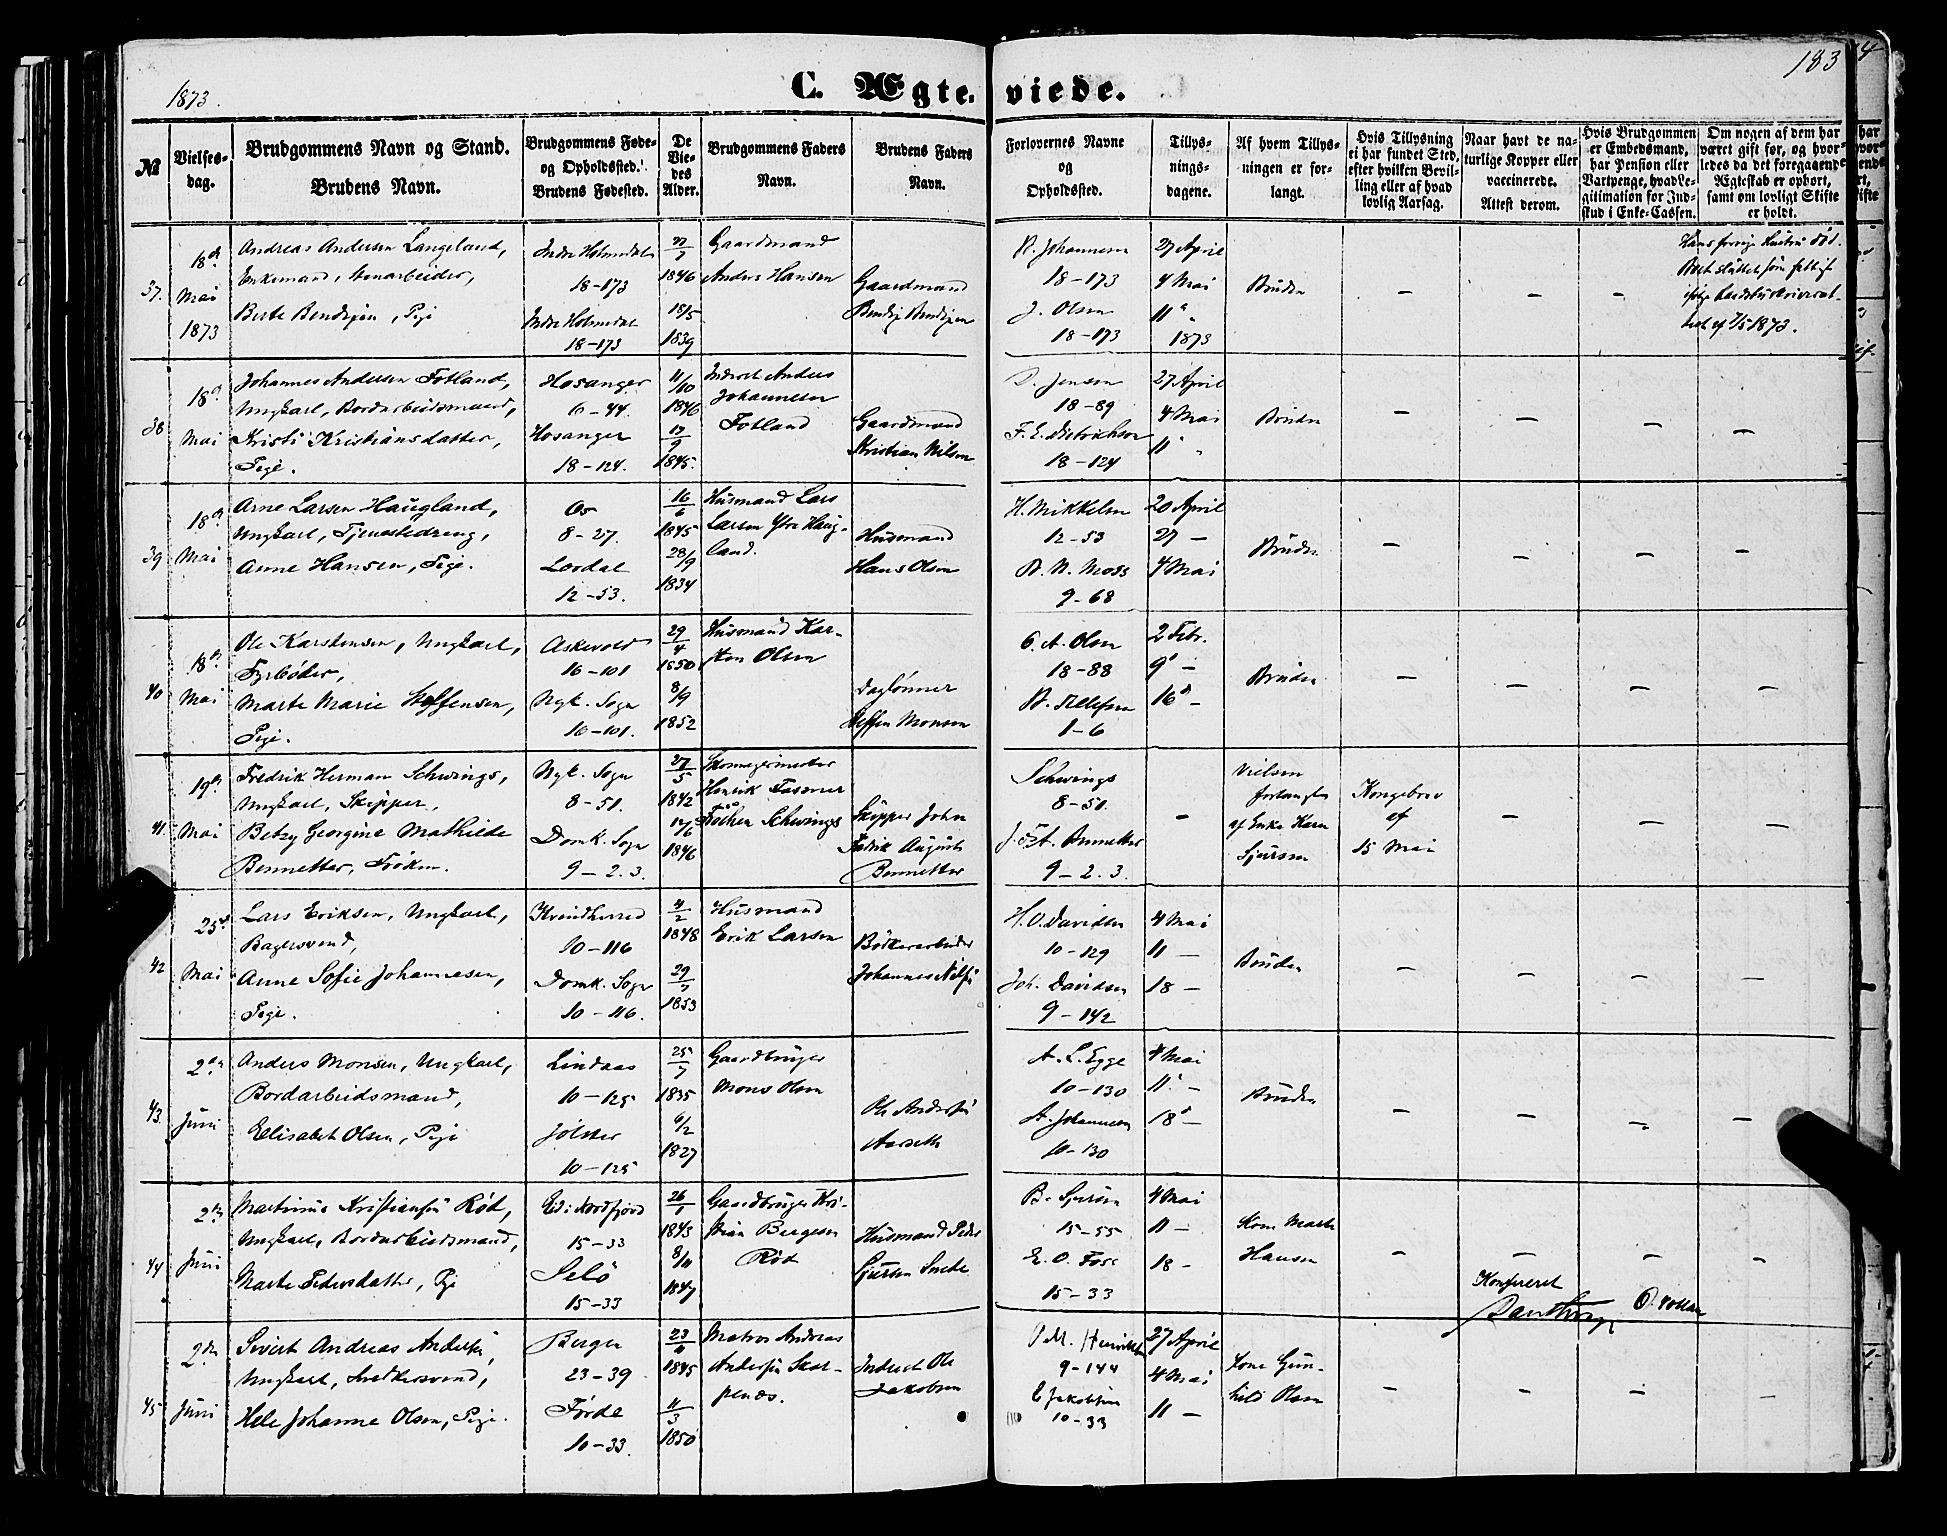 1873.
C. Ægteviede.
183
№
Vielsesdag.
Brudgommens Navn og Stand.
Brudens Navn.
Brudgommens Føde- og Opholdssted.
Brudens Fødested.
De Viedes Alder.
Brudgommens Faders Navn.
Brudens Faders Navn.
Forlovernes Navne og Opholdssted.
Tillysningsdagene.
Af hvem Tillysningen er forlangt.
Hvis Tillysning ei har fundet Sted, efter hvilken Bevilling eller af hvad lovlig Aarsag.
Naar havt de naturlige Kopper eller vaccinerede. Attest derom.
Hvis Brudgommen er Embedsmand, har Pension eller Vartpenge, hvad Legitimation for Indskud i Enke-Cassen.
Om nogen af dem har været gift før, og hvorledes da det foregaaende Ægteskab er ophørt, samt om lovligt Skifte er holdt.
37.
18de Mai 1873
Andreas Andersen Langeland,
Enkemand,
Berte Bendixsen, Pige
Indre Holmedal
18-173
Indre Holmedal
18-173
1846
18/5
1839
Gaardmand
Anders Hansen
Gaardmand
Johannesen
18-173
J. Olsen
18-173
27 April
4 Mai
11
1873
Bruden
1873.
38
18de Mai
Johannes Andersen Fotland,
Ungkarl, Bordarbeidsmand,
Kristi Kristiansdatter,
Pige.
Hosanger
6-44.
Hosanger
18-124.
11/10
1846
17/9
1845.
Inderst Anders
Johannesen
Fotland
Gaardmand
Kristian Nilsen
Jensen
18-89
F. E. Dietrichson
18-124
27 April
4 Mai
11
Bruden
39
18de Mai
Arne Larsen Haugland,
Ungkarl, Tjenestedreng,
Anne Hansen, Pige.
Os
8-27.
Lærdal
12-53.
16/6
1845
28/9
1834
Husmand Lars
Larsen Ytre Haugland.
Husmand
Hans Olsen
H. Mikkelsen
12-53
Moss
9-68
20 April
27 -
4 Mai
Bruden
40
18de Mai
Ole Karstensen, Ungkarl,
Fyrbøder,
Marte Marie Steffensen,
Pige.
Askevold
16-101
Nyk. Sogn
16-101.
29/4
1850
8/9
1852
Husmand Karsten Olsen
Daglønner
Steffen Monsen
O. A. Olsen
18-88
Tellefsen
1-6
2 Febr.
9 -
16 -
Bruden
41.
19de Mai
Fredrik Herman Schwings,
Ungkarl, Skipper,
Betzy Georgine Mathilde
Bennetter, Frøken.
Nyk. Sogn
8-51.
Domk. Sogn
9-2.3.
27/5
1842
17/6
1846
Skomagermester
Henrik Fasmer
Schwings
Skipper John
Fredrik August
Bennetter
Schwings
8-51.
Bennetter
9-2.3.
Vielsen
forlangt
af Enke Karn
Sjursen
Kongebrev
af
15 Mai
42
25de Mai
Lars Eriksen, Ungkarl,
Bagersvend,
Anne Sofie Johannesen,
Pige.
Kvindherred
10-116
Domk. Sogn
10-116.
4/2
1848
29/7
1853
Husmand
Erik Larsen
Bødkerarbeider
Johannes Nilsen
H. O. Davidsen
10-129
Joh. Davidsen
9-142
4 Mai
11 -
18 -
Bruden
43
2den Juni
Anders Monsen, Ungkarl,
Bordarbeidsmand,
Ellisabet Olsen, Pige
Lindaas
10-125
Jølster
10-125
25/7
1835
6/2
1827
Gaardbruger
Mons Olsen
Ole Andersen
Aarseth
A. L. Egge
10-130
A. Johannesen
10-130
4 Mai
11 -
18 -
Bruden
44
2den Juni
Martinus Kristiansen Rød,
Ungkarl, Bordarbeidsmand,
Marte Pedersdatter, Pige
Eid i Nordfjord
15-33
Selø
15-33
26/1
1843
8/11
1847
Gaardbruger Kristian Børgesen
Rød
Husmand Peder
Sjursen
B. Sjursen
15-55
E. O. Fosse
15-33
4 Mai
11 -
18 -
Kone Marte
Hansen
Konfereret
45
2den Juni
Sivert Andreas Andersen,
Ungkarl, Snedkersvend,
Hele Johanne Olsen, Pige.
Bergen
23-39
Førde
10-33.
1845
11/3
1850
Matros Andreas
Andersen Skarpenæs.
Inderst Ole
Jakobsen
Henriksen
9-144
Jakobsen
10-33
27 April
4 Mai
11 -
Kone Gunhild Olsen